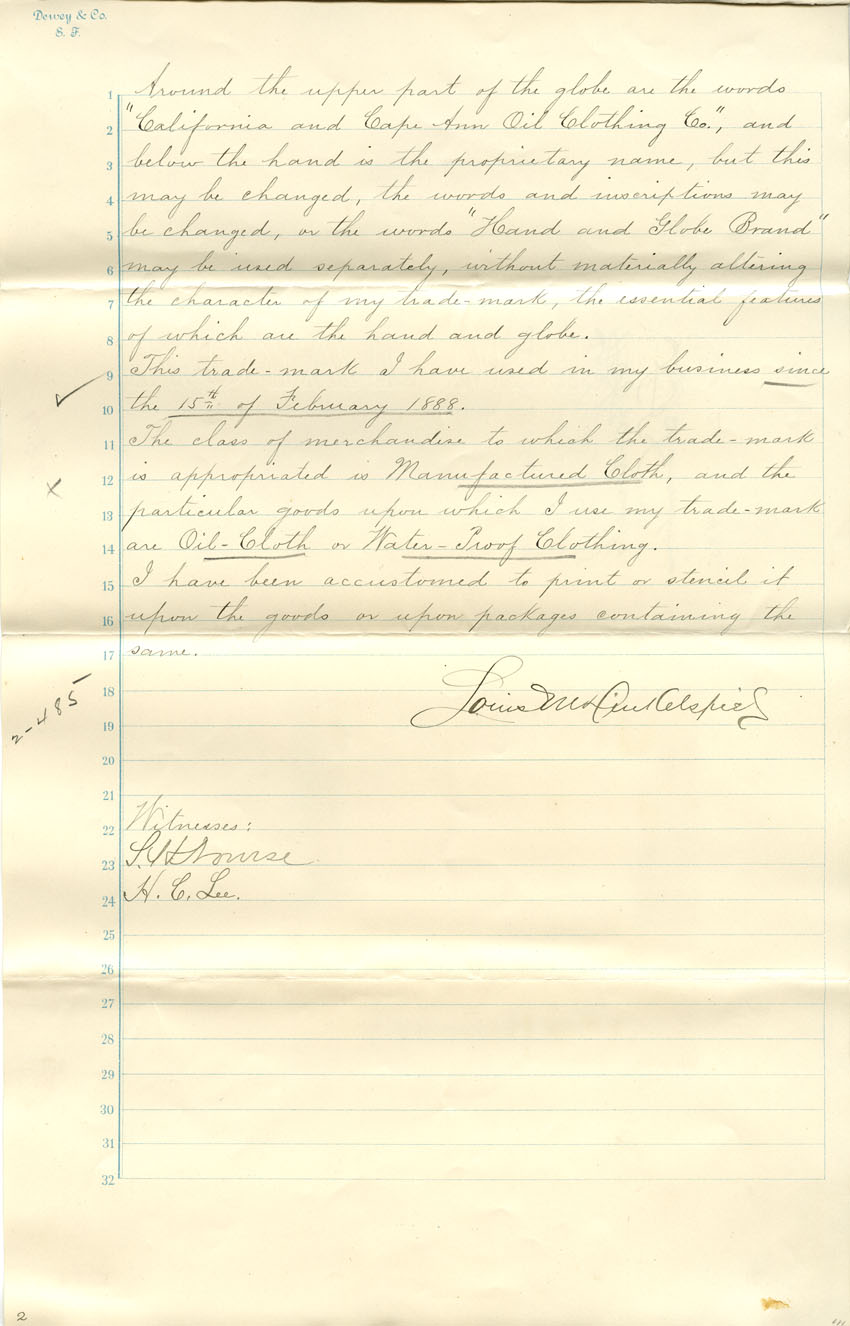 Dewey & Co.
S. F.
1 Around the upper part of the globe are the words
2 "California and Cape Ann Oil Clothing Co.", and
3 below the hand is the proprietary name, but this
4 may be changed, the words and inscriptions may
5 be changed, or the words "Hand and Globe Brand"
6 may be used separately, without materially altering
7 the character of my trade-mark, the essential features
8 of which are the hand and globe.
9 This trade-mark I have used in my business since
10 the 15th of February 1888.
11 The class of merchandise to which the trade-mark
12 is appropriated is Manufactured Cloth, and the
13 particular goods upon which I use my trade-mark
14 are Oil-Cloth or Water-Proof Clothing.
15 I have been accustomed to print or stencil it
16 upon the goods or upon packages containing the
17 same.
18
2-485
Louis
19
20
21
22 Witnesses:
23 Nourse
24 H. C. Lee.
25
26
27
28
29
30
31
32
2